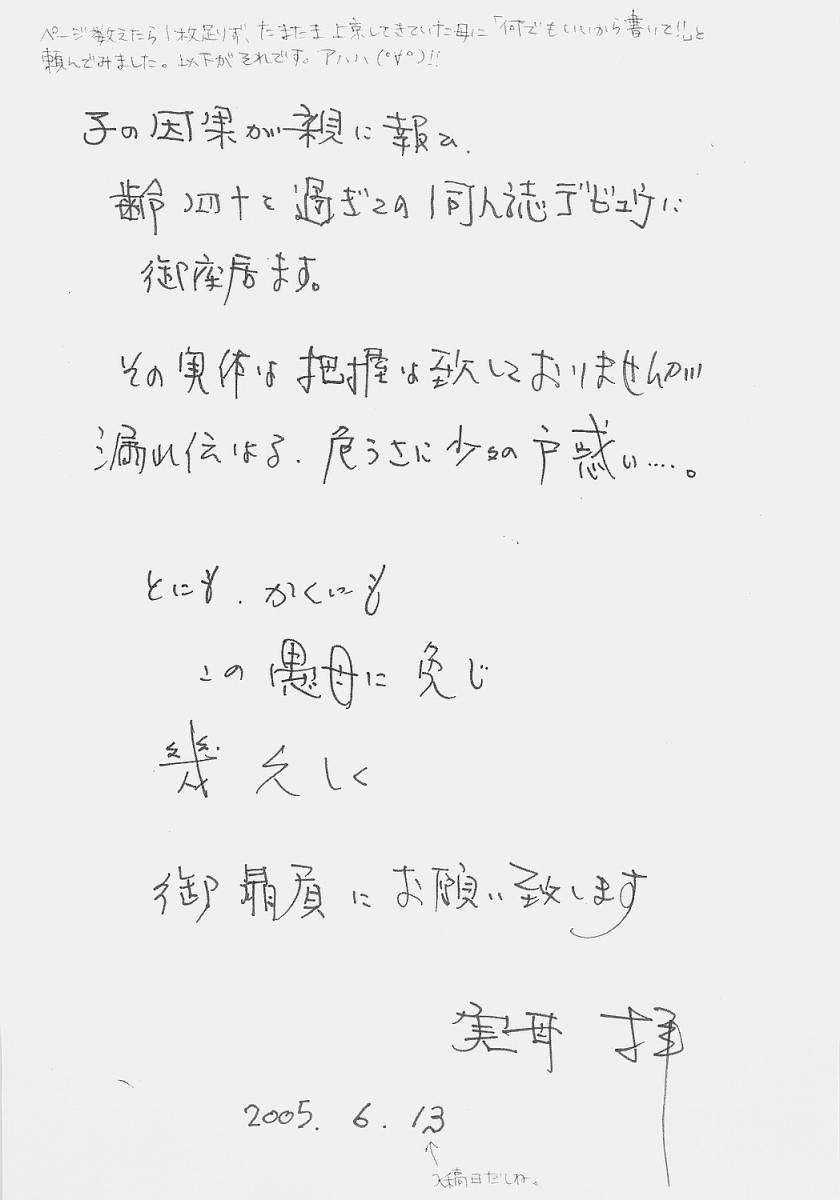 ページ数えたら1枚足りず、たまたま上京してきていた母に「何でもいいから書いて!!」と
頼んでみました。以下がそれです。アハハ(°∀°)!!
子の因果が親に報ひ、
齢 四十を過ぎての同人誌デビュウに
御座居ます。
その実体は把握は致しておりませんが
漏れ伝はる、危うさに少々の戸惑い….。
とにも、かくにも
この愚母に免じ
幾久しく
御贔屓にお願い致します
実母 拝
2005. 6. 13
↑
入稿日だしね。